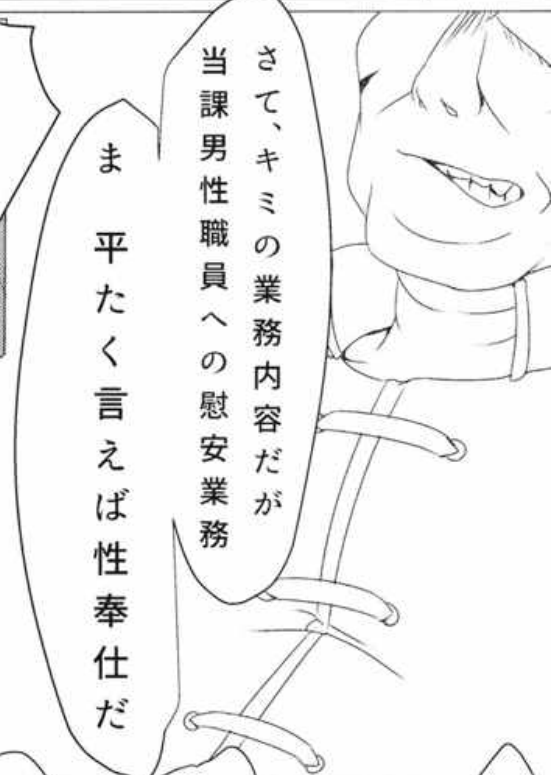 さて、キミの業務内容だが
当課男性職員への慰安業務
ま　平たく言えば性奉仕だ